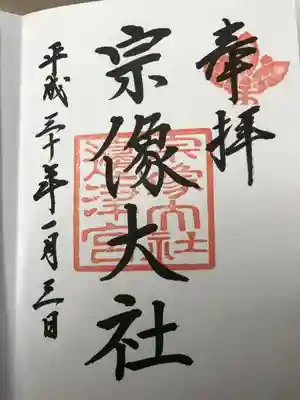 奉拝
宗像大社
宗像大社
邊津宮
平成三十年一月三日